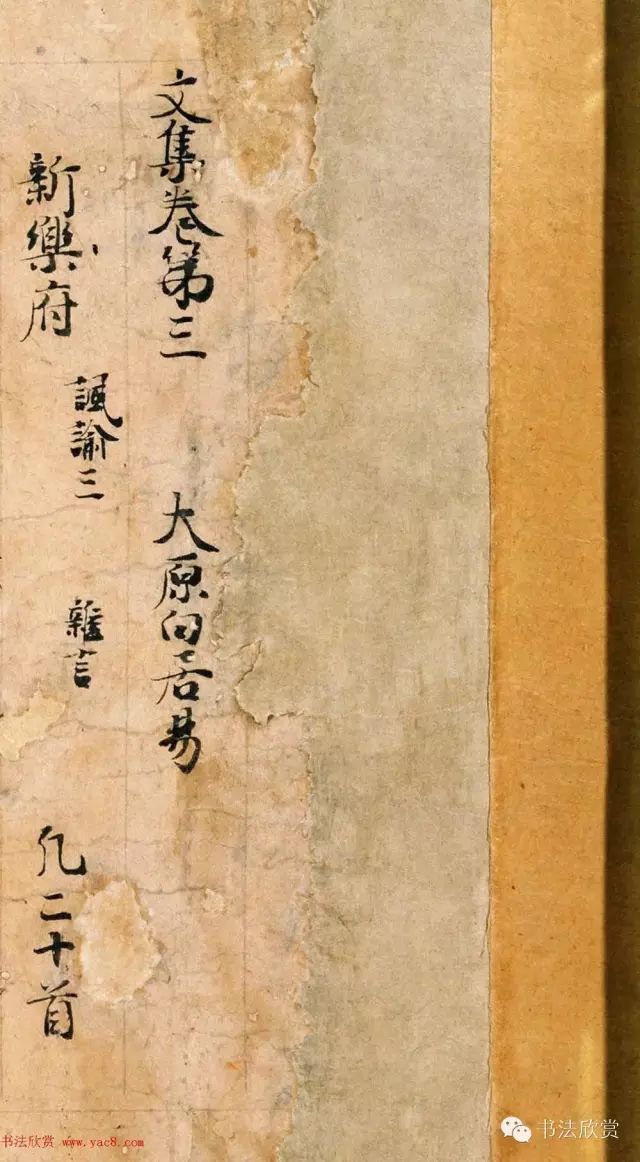 文集卷第三 大原白居易
新樂府 諷諭三 雜言 凡二十首
书法欣赏 www.yac8.com
书法欣赏